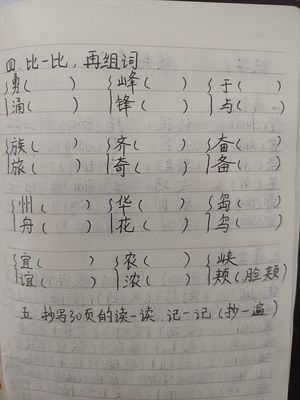 四.比一比,再组词
勇( ) 峰( ) 于( )
涌( ) 锋( ) 与( )
族( ) 齐( ) 奋( )
旅( ) 奇( ) 备( )
州( ) 华( ) 岛( )
舟( ) 花( ) 鸟( )
宜( ) 农( ) 峡
谊( ) 浓( ) 颊(脸颊)
五.抄写30页的读一读.记一记(抄一遍)